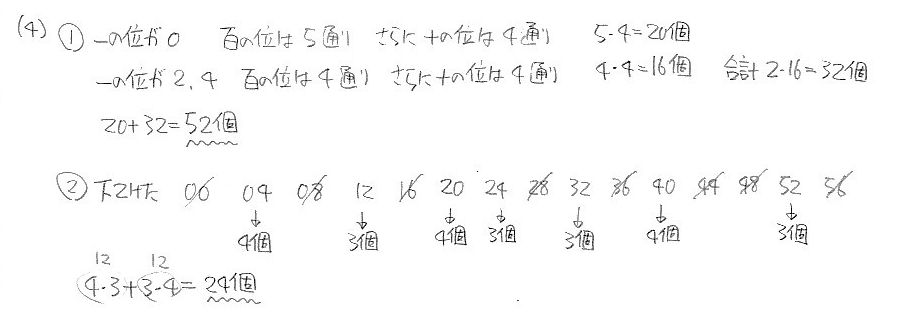 (4) ① 一の位が0 百の位は5通り さらに十の位は4通り 5・4=20個
一の位が2,4 百の位は4通り さらに十の位は4通り 4・4=16個 合計2・16=32個
20+32=52個
② 下2けた 00 04 08 12 16 20 24 28 32 36 40 44 48 52 56
↓ ↓ ↓ ↓ ↓ ↓ ↓
4個 3個 4個 3個 3個 4個 3個
12 12
4・3+3・4=24個